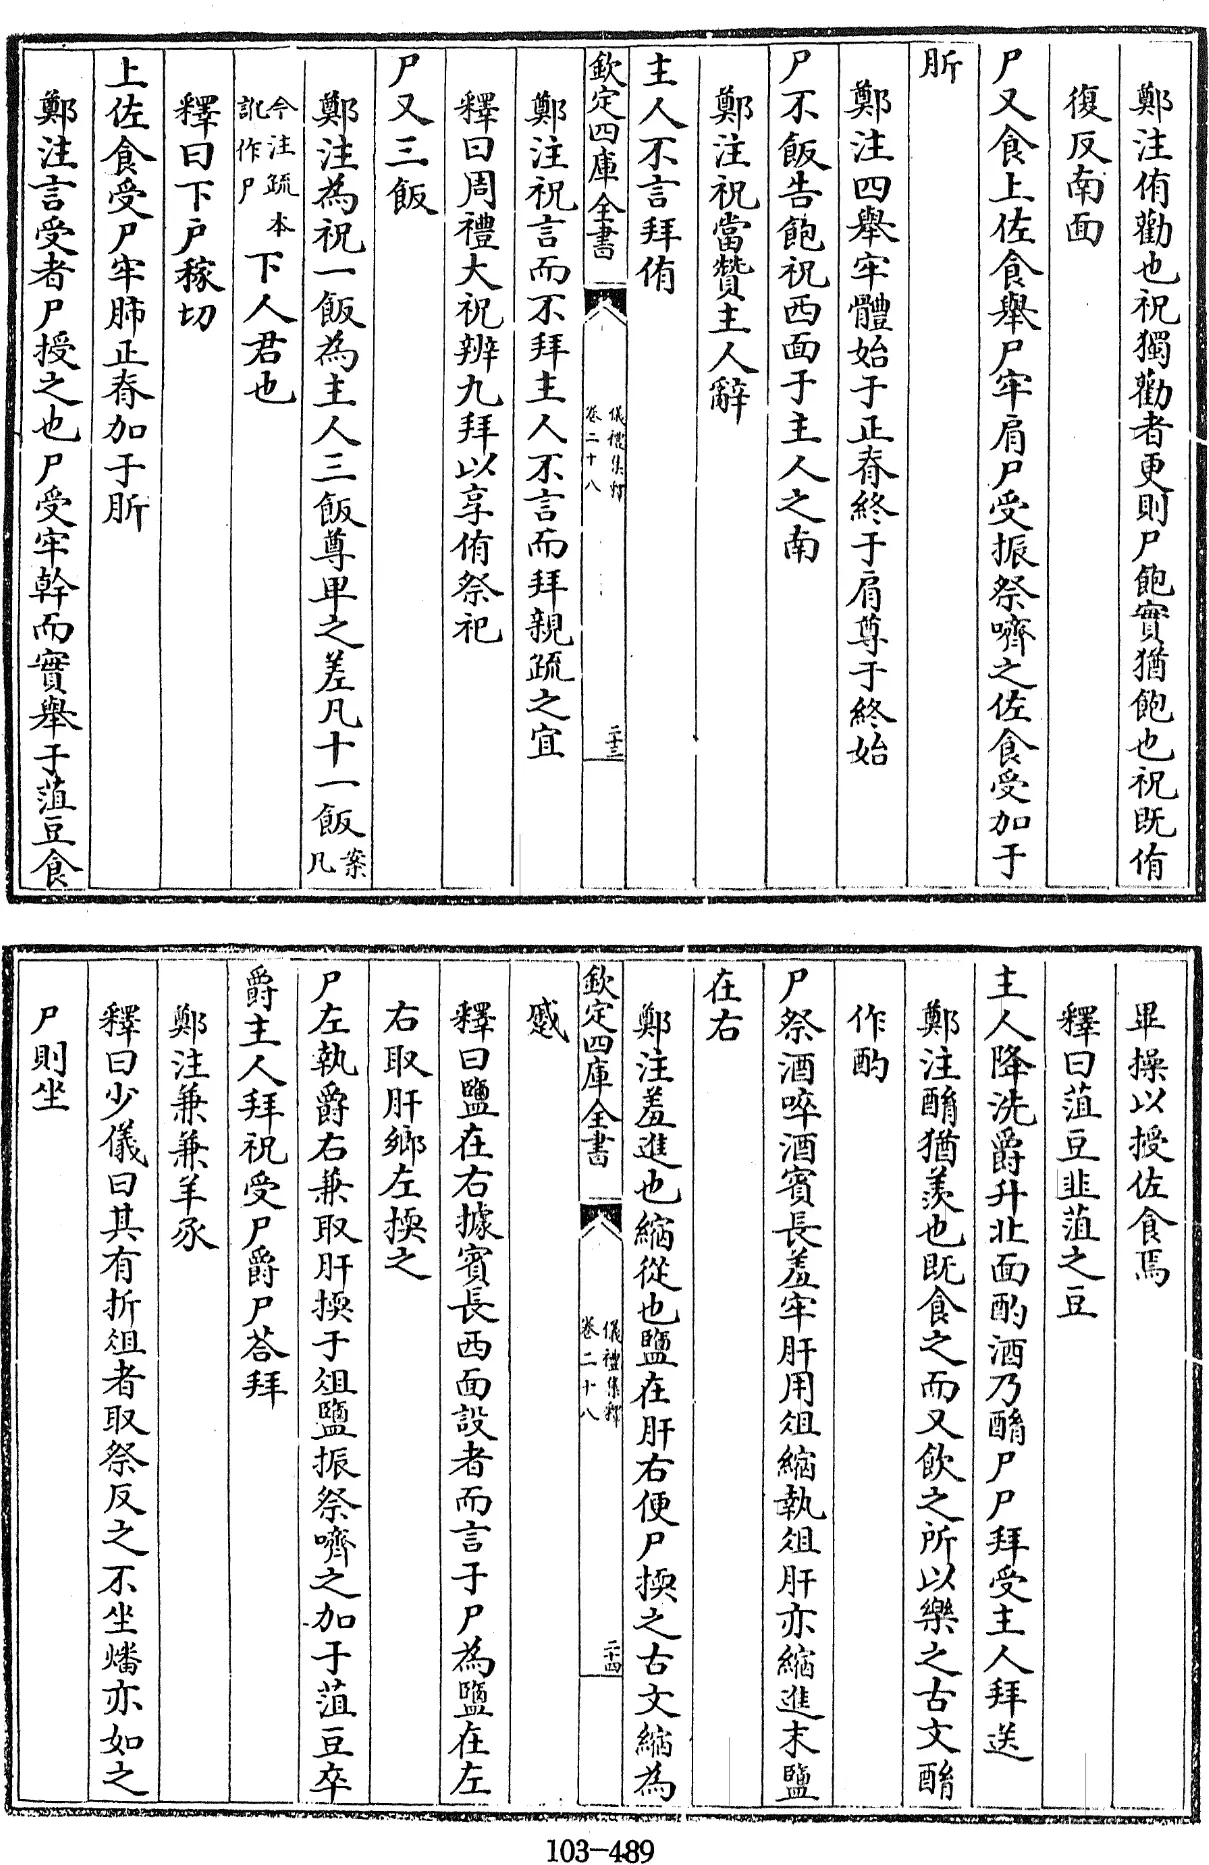 鄭注侑勸也祝獨勸者更則尸飽實猶飽也祝既侑
復反南面
尸又食上佐食舉尸牢肩尸受振祭嚌之佐食受加于
肵
鄭注四舉牢體始于正脊終于肩尊于終始
尸不飯告飽祝西面于主人之南
鄭注祝當贊主人辭
主人不言拜侑
欽定四庫全書
儀禮集釋
卷二十八
二十三
鄭注祝言而不拜主人不言而拜親疏之宜
釋曰周禮大祝辨九拜以享侑祭祀
尸又三飯
鄭注為祝一飯為主人三飯尊卑之差凡十一飯案凡
今注疏本訛作尸下人君也
釋曰下戶稼切
上佐食受尸牢肺正脊加于肵
鄭注言受者尸授之也尸受牢幹而實舉于菹豆食
畢操以授佐食焉
釋曰菹豆韭菹之豆
主人降洗爵升北面酌酒乃酳尸尸拜受主人拜送
鄭注酳猶羨也既食之而又飲之所以樂之古文酳
作酌
尸祭酒啐酒賓長羞牢肝用俎縮執俎肝亦縮進末鹽
在右
鄭注羞進也縮從也鹽在肝右便尸擩之古文縮為
欽定四庫全書
儀禮集釋
卷二十八
二十四
蹙
釋曰鹽在右據賓長西面設者而言于尸為鹽在左
右取肝鄉左擩之
尸左執爵右兼取肝擩于俎鹽振祭嚌之加于菹豆卒
爵主人拜祝受尸爵尸荅拜
鄭注兼兼羊豕
釋曰少儀曰其有折俎者取祭反之不坐燔亦如之
尸則坐
103-489